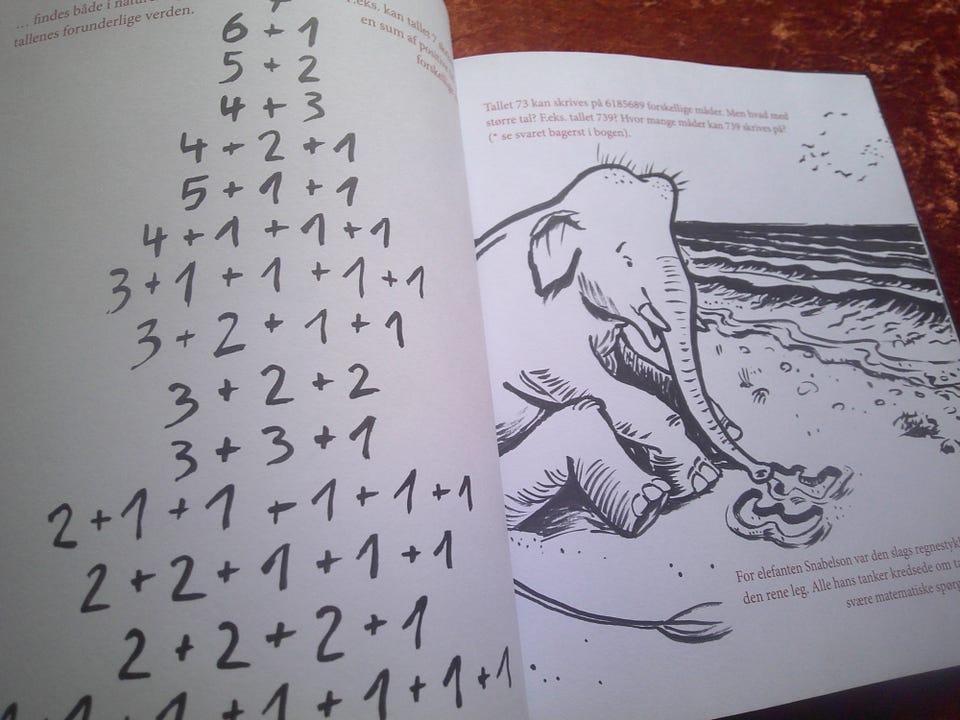 ... findes både i
tallenes forunderlige verden.
F.eks. kan tallet 7
en sum af positive
6 + 1
5 + 2
4 + 3
4 + 2 + 1
5 + 1 + 1
4 + 1 + 1 + 1
3 + 1 + 1 + 1 + 1
3 + 2 + 1 + 1
3 + 2 + 2
3 + 3 + 1
2 + 1 + 1 + 1 + 1 + 1
2 + 2 + 1 + 1 + 1
2 + 2 + 2 + 1
+ 1 + 1 + 1 + 1 + 1
Tallet 73 kan skrives på 6185689 forskellige måder. Men hvad med
større tal? F.eks. tallet 739? Hvor mange måder kan 739 skrives på?
(* se svaret bagerst i bogen).
For elefanten Snabelson var den slags
den rene leg. Alle hans tanker kredsede om
svære matematiske